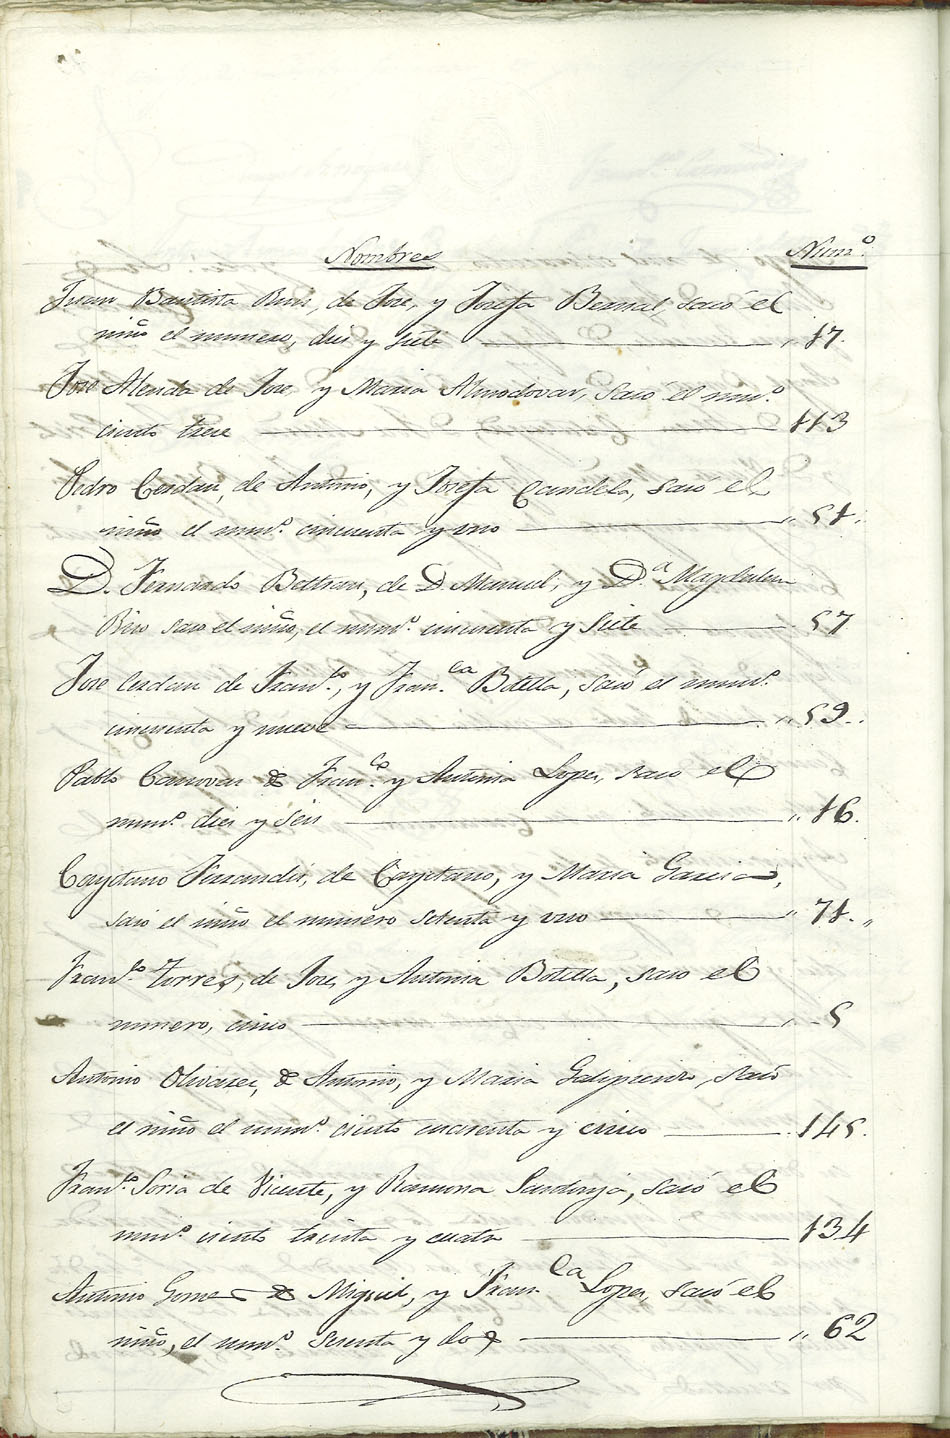 Nombres Num.º
Juan Bautista Ruiz, de Jose, y Josefa Bernal, sacó el
niño el numero, diez y siete " 17.
Jose Alenda de Jose, y Maria Almodovar, sacó el num.º
ciento trece 113
Pedro Cerdan, de Antonio, y Josefa Candela, sacó el
niño el num.º cincuenta y uno " 51.
D. Fernando Beltran, de D. Manuel, y D.ª Magdalena
Rico saco el niño, el num.º cincuenta y siete 57
Jose Cerdan de Fran.co, y Fran.ca Botella, sacó el num.º
cincuenta y nueve " 59.
Pablo Canovas de Fran.co y Antonia Lopez, saco el
num.º diez y seis " 16.
Cayetano Fernandez, de Cayetano, y Maria Garcia,
sacó el niño el numero setenta y uno " 71. "
Fran.co Torres, de Jose, y Antonia Botella, saco el
numero, cinco " 5
Antonio Olivares, de Antonio, y Maria Galipienso, sacó
el niño el num.º ciento cuarenta y cinco 145.
Fran.co Soria de Vicente, y Ramona, sacó el
num.º ciento treinta y cuatro 134
Antonio Gomez de Miguel, y Fran.ca Lopez, sacó el
niño, el num.º sesenta y dos " 62